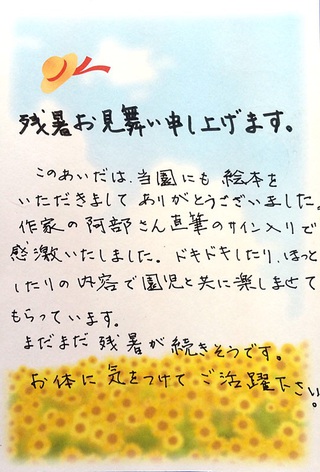 残暑お見舞い申し上げます。
このあいだは、当園にも 絵本を
いただきまして ありがとうございました。
作家の阿部さん直筆のサイン入りで
感激いたしました。ドキドキしたり、ほっと
したりの内容で園児と共に楽しませて
もらっています。
まだまだ 残暑が 続きそうです。
お体に 気をつけて ご活躍下さい。